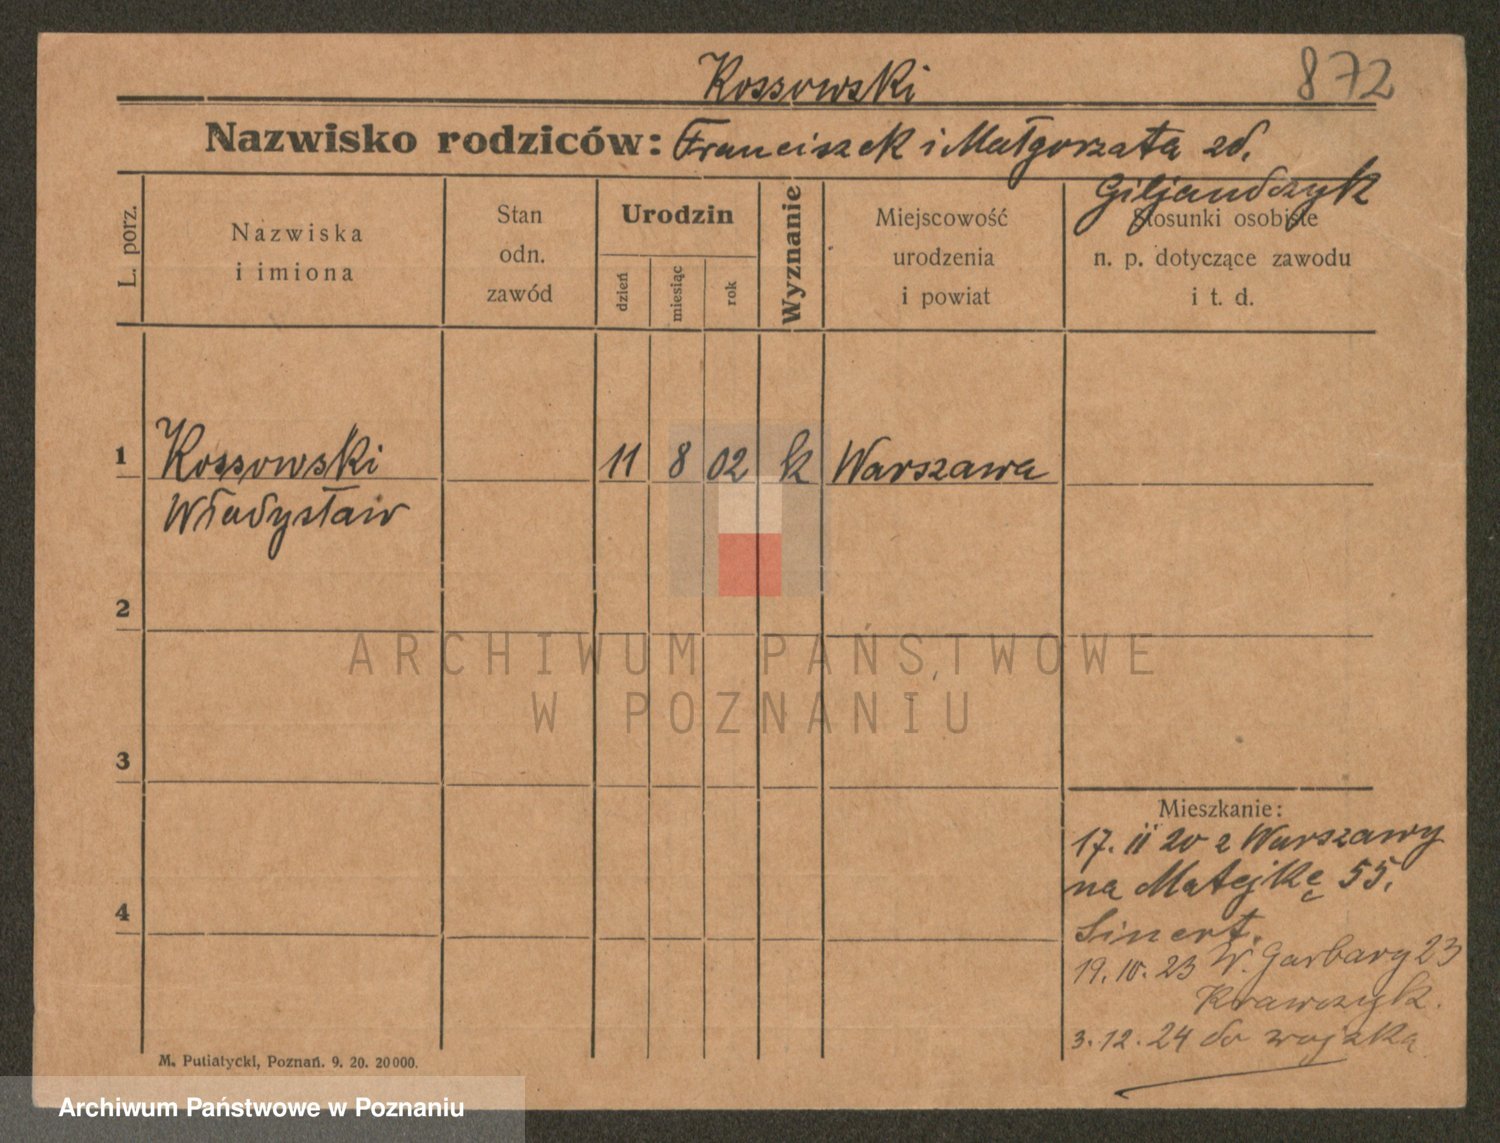 Kossowski
872
Nazwisko rodziców: Franciszek i Małgorzata zd.
Giljandczyk
L. porz.
Nazwiska
i imiona
Stan
odn.
zawód
Urodzin
dzień
miesiąc
rok
Wyznanie
Miejscowość
urodzenia
i powiat
Stosunki osobiste
n. p. dotyczące zawodu
i t. d.
1 Kossowski 11 8 02 k Warszawa
Władysław
2
ARCHIWUM PAŃSTWOWE
W POZNANIU
3
Mieszkanie:
17. II 20 z Warszawy
na Matejkę 55.
4
19. IV. 23 W. Garbary 23
Krawczyk.
3. 12. 24 do wojska
M. Putiatycki, Poznań. 9. 20. 20000.
Archiwum Państwowe w Poznaniu